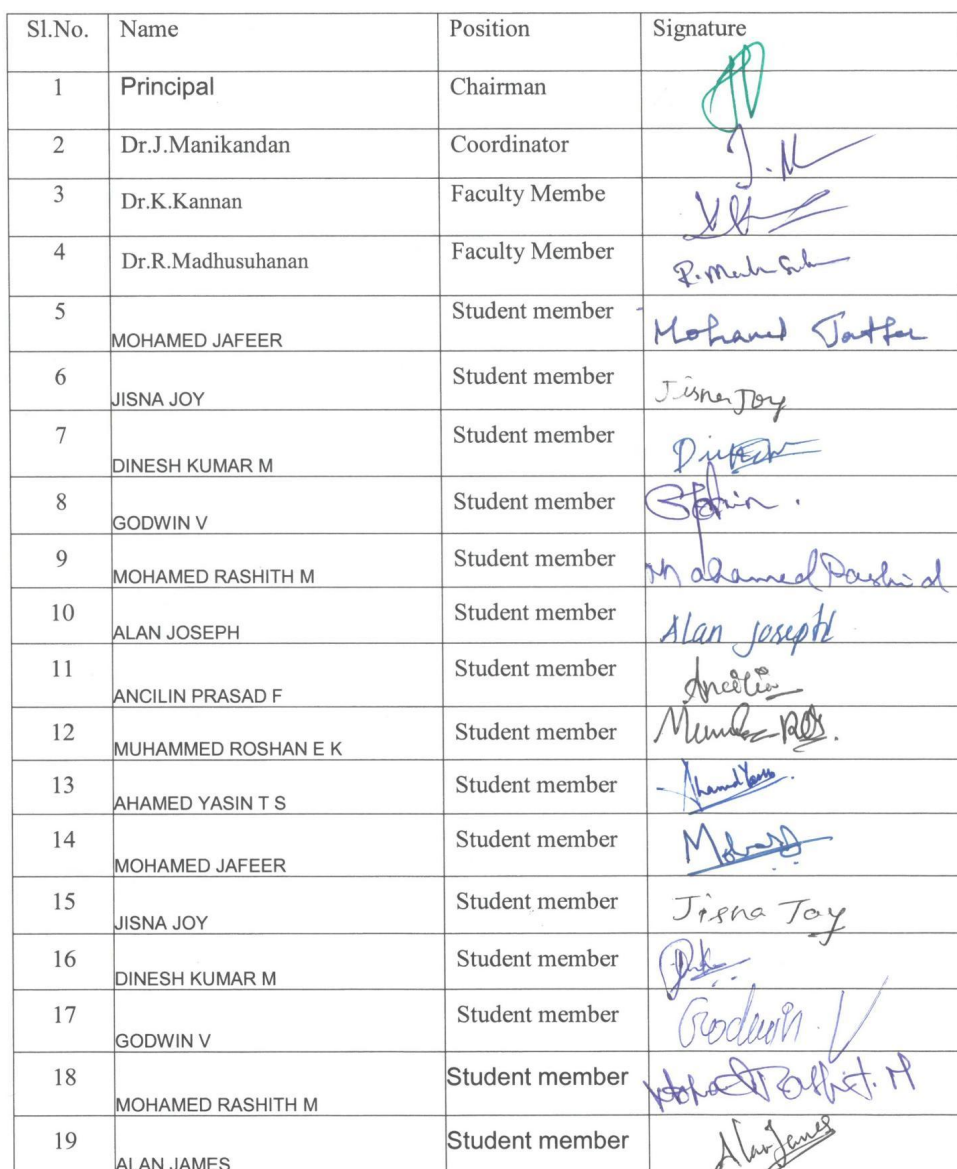 Sl.No. Name Position Signature
1 Principal Chairman
2 Dr.J.Manikandan Coordinator J.M
3 Dr.K.Kannan Faculty Membe
4 Dr.R.Madhusuhanan Faculty Member
5 MOHAMED JAFEER Student member Mohamed
6 JISNA JOY Student member Jisna Joy
7 DINESH KUMAR M Student member
8 GODWIN V Student member
9 MOHAMED RASHITH M Student member Mohamed Rashid
10 ALAN JOSEPH Student member Alan Joseph
11 ANCILIN PRASAD F Student member Ancilin
12 MUHAMMED ROSHAN E K Student member
13 AHAMED YASIN T S Student member
14 MOHAMED JAFEER Student member
15 JISNA JOY Student member Jisna Joy
16 DINESH KUMAR M Student member
17 GODWIN V Student member Godwin V
18 MOHAMED RASHITH M Student member
19 ALAN JAMES Student member Alan James